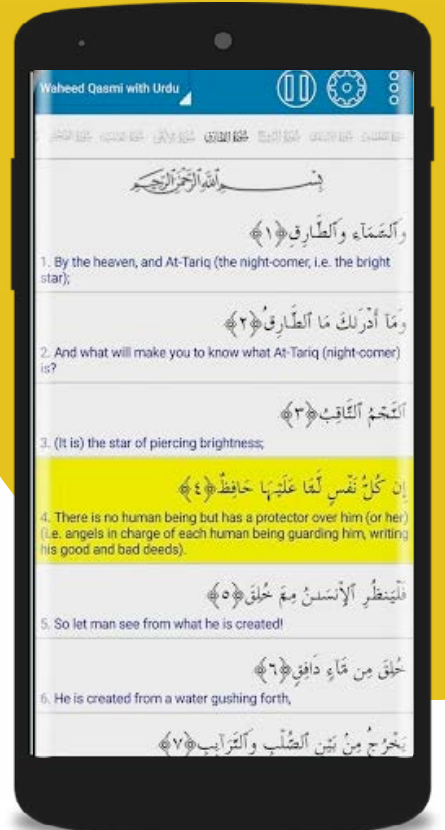 Waheed Qasmi with Urdu
سُورَةُ الطَّارِقِ
بِسْمِ ٱللَّهِ ٱلرَّحْمَٰنِ ٱلرَّحِيمِ
وَٱلسَّمَآءِ وَٱلطَّارِقِ﴿١﴾
1. By the heaven, and At-Tariq (the night-comer, i.e. the bright
star);
وَمَآ أَدْرَىٰكَ مَا ٱلطَّارِقُ﴿٢﴾
2. And what will make you to know what At-Tariq (night-comer)
is?
ٱلنَّجْمُ ٱلثَّاقِبُ﴿٣﴾
3. (It is) the star of piercing brightness;
إِن كُلُّ نَفْسٍ لَّمَّا عَلَيْهَا حَافِظٌ﴿٤﴾
4. There is no human being but has a protector over him (or her)
(i.e. angels in charge of each human being guarding him, writing
his good and bad deeds).
فَلْيَنظُرِ ٱلْإِنسَٰنُ مِمَّ خُلِقَ﴿٥﴾
5. So let man see from what he is created!
خُلِقَ مِن مَّآءٍ دَافِقٍ﴿٦﴾
6. He is created from a water gushing forth,
يَخْرُجُ مِنۢ بَيْنِ ٱلصُّلْبِ وَٱلتَّرَآئِبِ﴿٧﴾